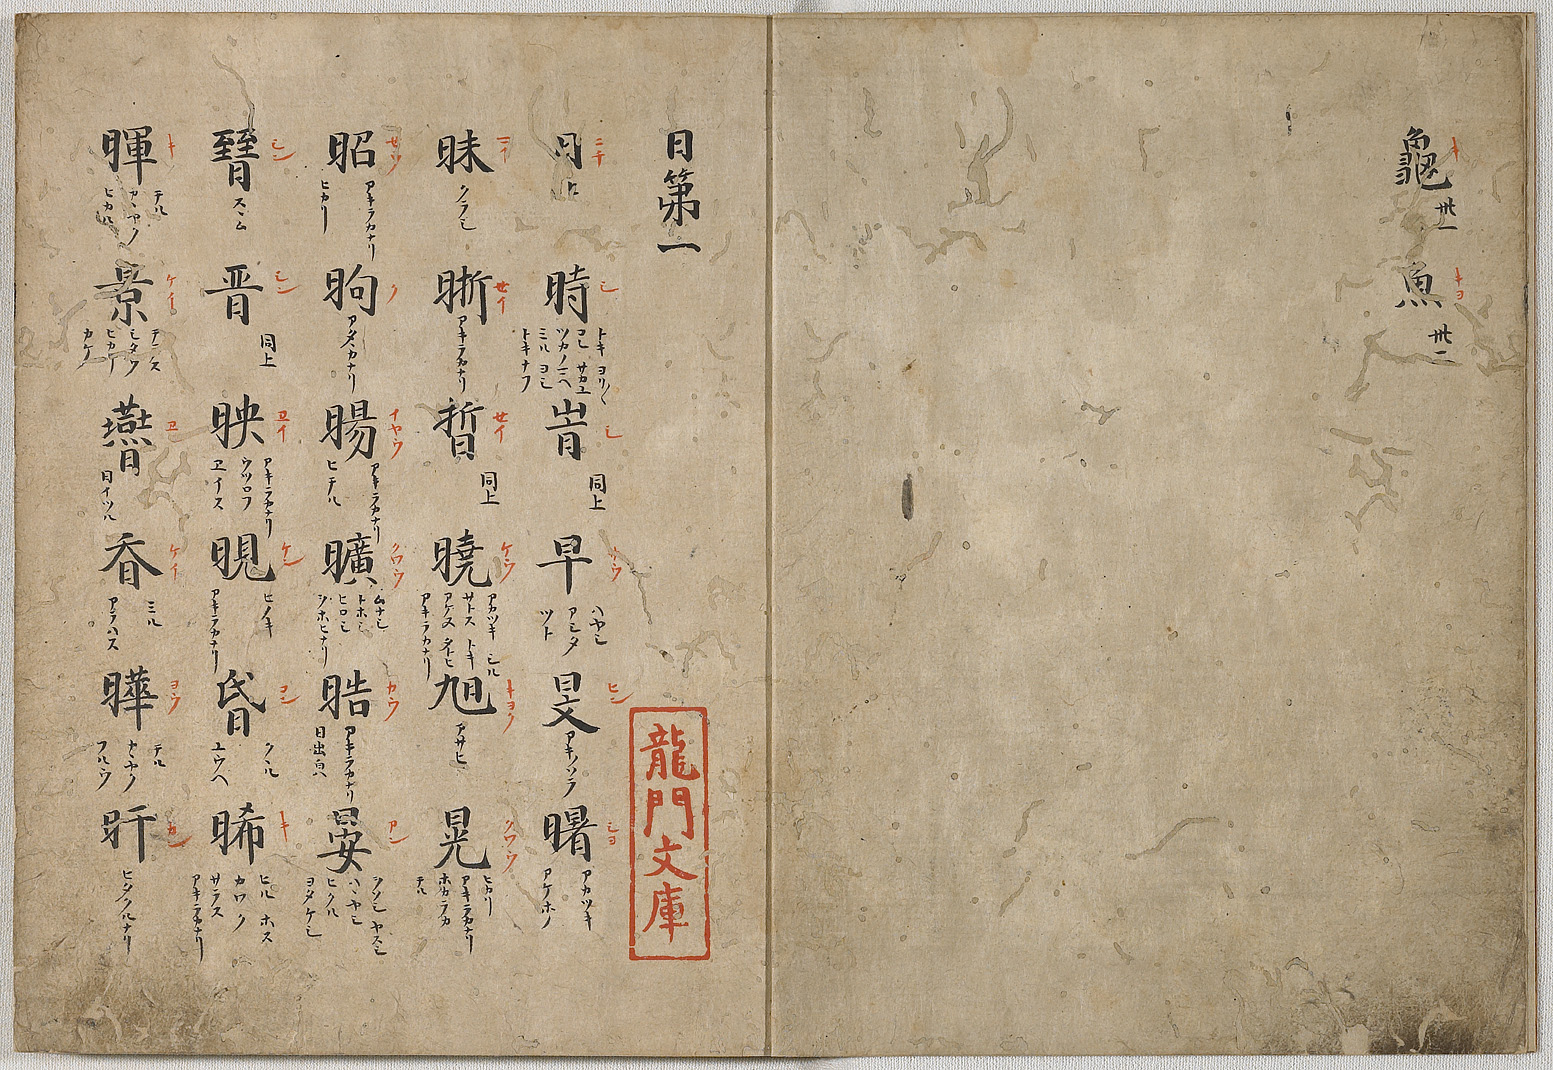 龜 キ 卅一 魚 キヨ 卅二
日第一
日 時 シ トキ ヨリ〱 コレ サカユ ミル ヨシ トキナフ 旹 シ 同上 早 サウ ハヤシ アシタ ツト 旻 ヒン アキノソラ 曙 シヨ アカツキ アケホノ
昧 クラシ 晣 セイ アキラカナリ 晢 セイ 同上 曉 ケウ アカツキ シル サトス トキ アケヌ アキラカナリ 旭 アサヒ 晃 クワウ ヒカリ アキラカナリ ホカラカ テル
昭 アキラカナリ ヒカリ 昫 ク アタヽカナリ 暘 アキラカナリ ヒテル 曠 クワウ ムナシ トホシ ヒロシ 晧 カウ アキラカナリ 日出皃 晏 アン ヤスシ
㬜 シン スヽム 晋 シン 同上 映 ヱイ アキラカナリ ウツロフ ヱイス 晛 ケン アキラカナリ 昏 コン ユウヘ 晞 キ ヒル ホス カワク サラス アキラカナリ
暉 キ テル カヽヤク ヒカル 景 ケイ テラス シタフ ヒカリ カケ 日イツル ケイ ミル アラハス 曄 ヨウ テル カヽヤク 旰 カン ヒタクルナリ
龍門文庫